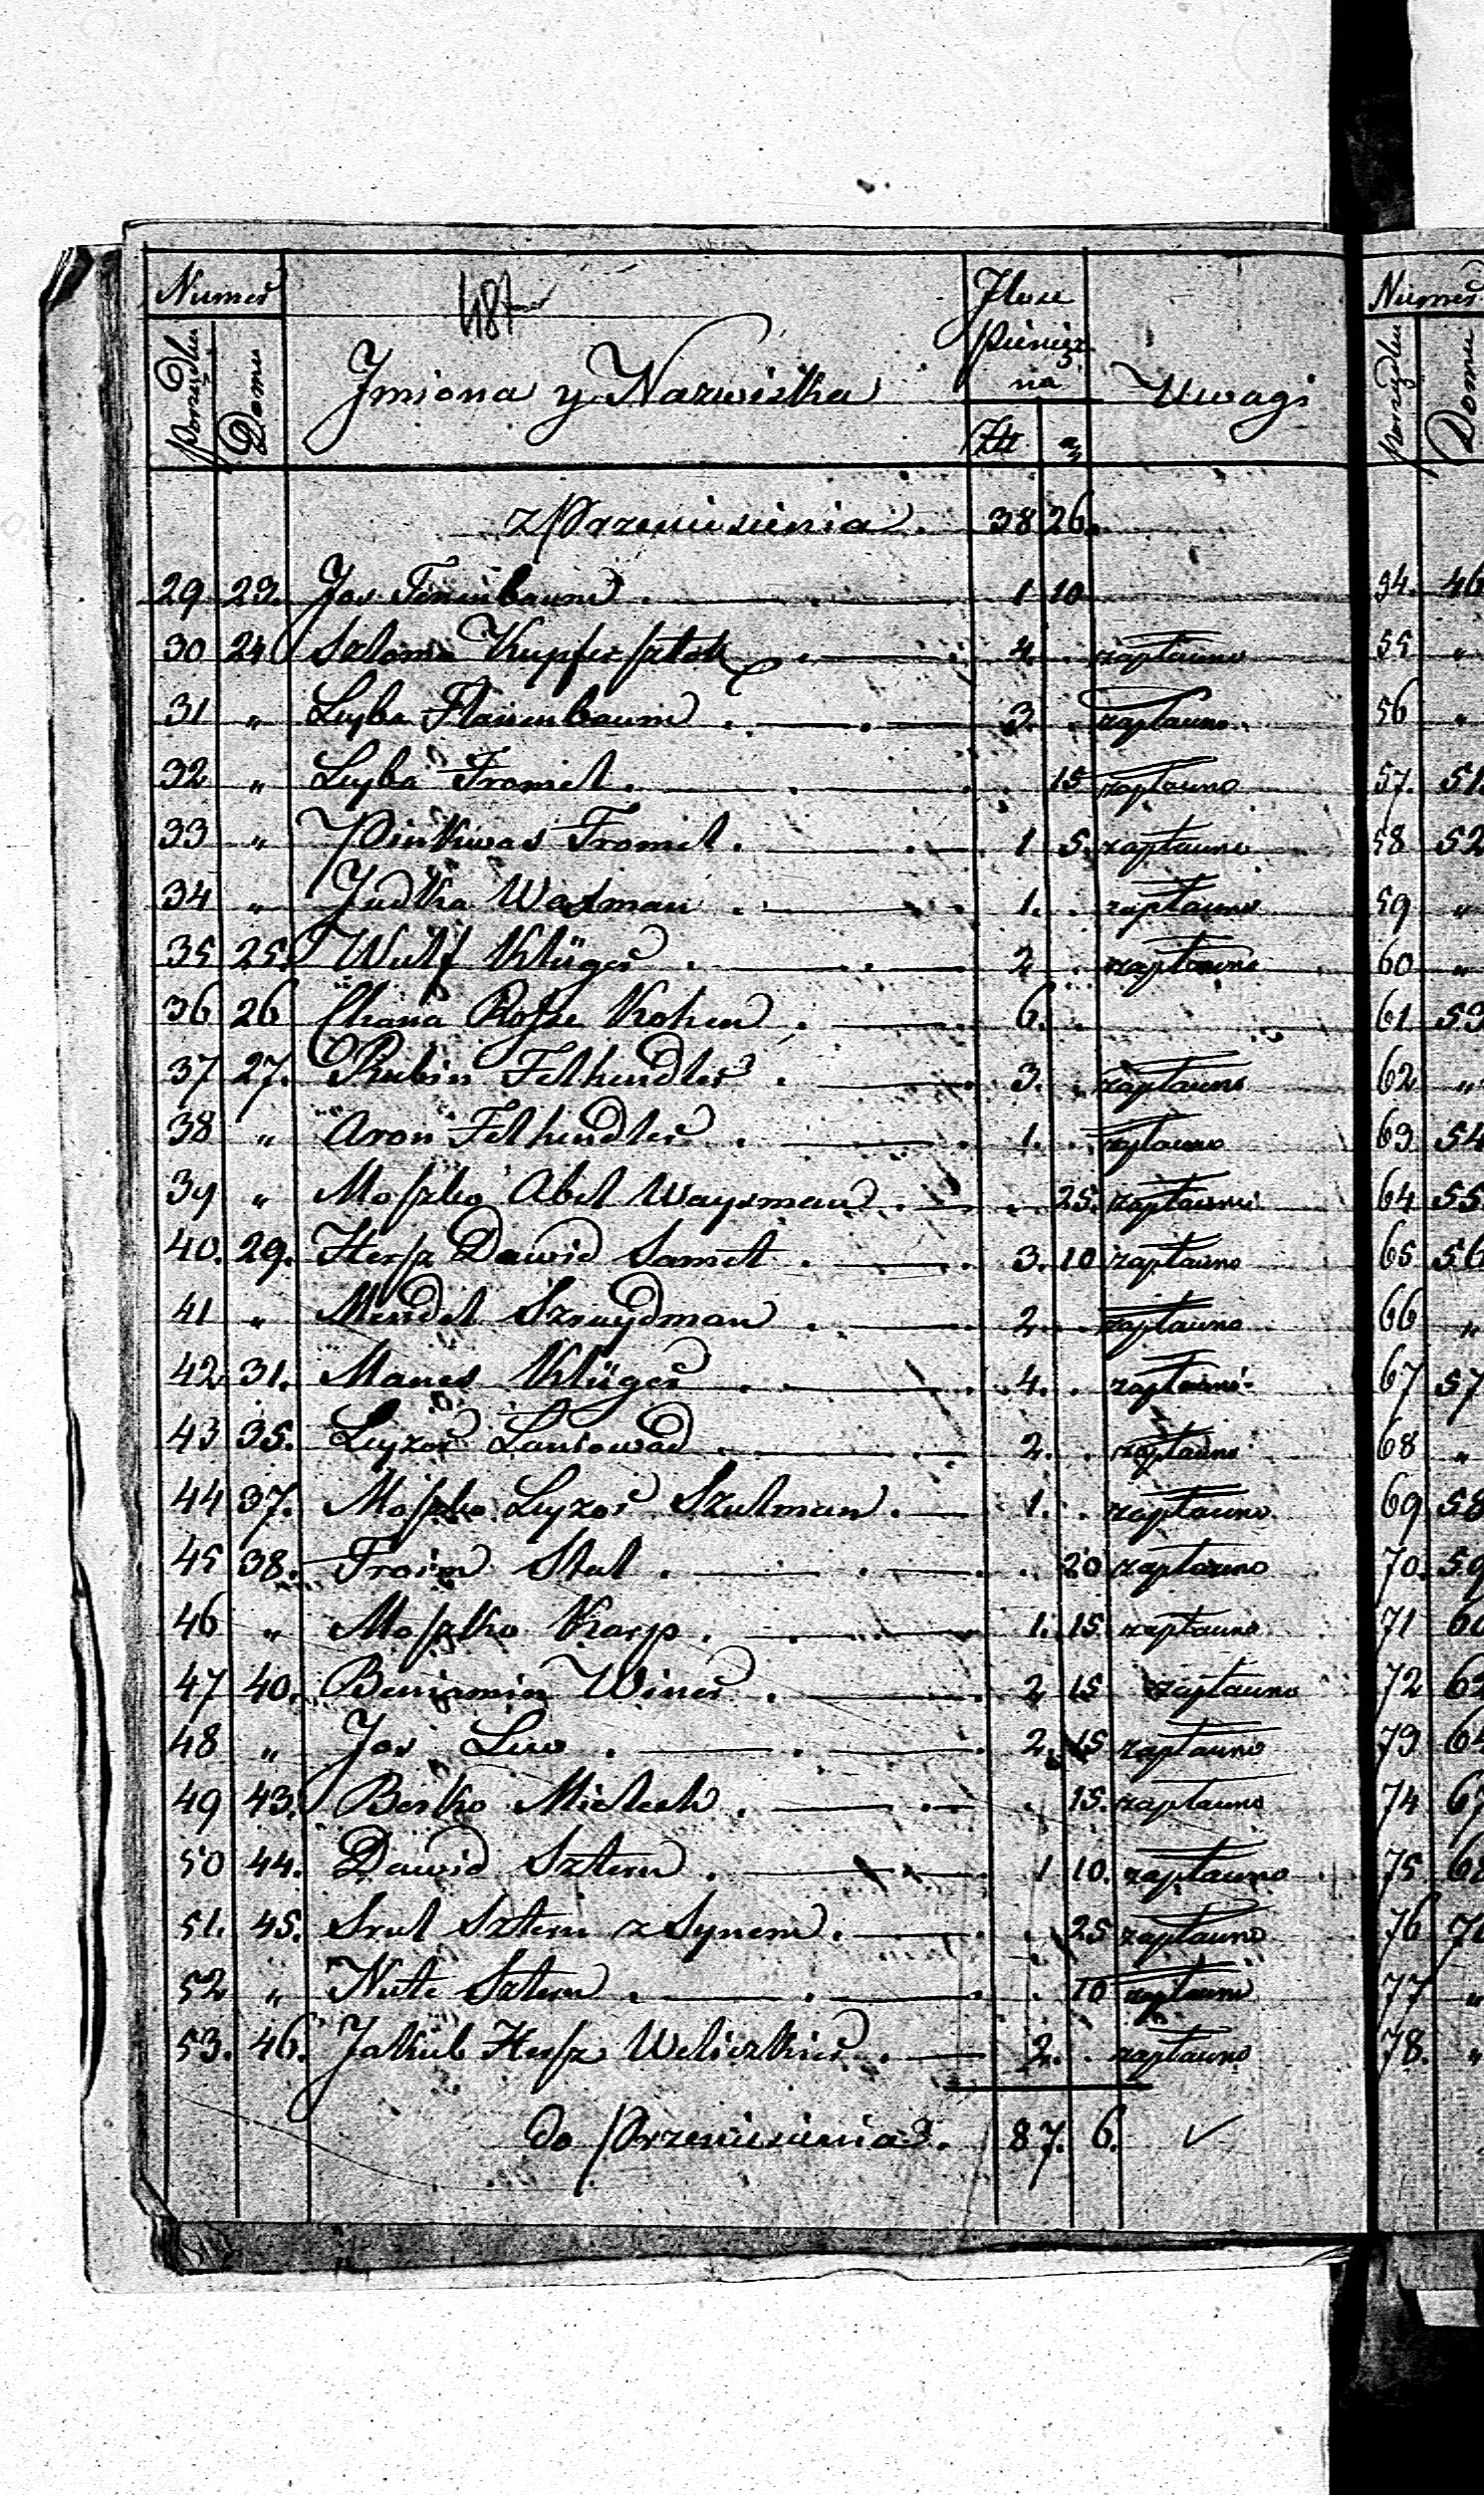 Numer
487
Jlosc
pienięż
na
Numer
porządku
Domu
Jmiona y Nazwiska
Uwagi
porządku
Domu
Złt
gr
z Przeniesienia . 38 26.
29 23. Jos Tenenbaum . 1 10
30 24 Szloma Kupfersztok . 4. . zapłacono
31 " Leyba Flaumbaum . 3. . zapłacono
32 " Leyba Fromet . . 15 zapłacono
33 " Pinkwas Fromet . 1 5. zapłacono
34 " Judka Waxman . 1. . zapłacono
35 25. Wulf Klüger . 2 . zapłacono
36 26 Chana Rojze Kohen . 6. .
37 27. Rubin Felhendler . 3. . zapłacono
38 " Aron Felhendler . 1. . zapłacono
39 " Moszko Abel Waysman . . 25. zapłacono
40. 29. Hersz Dawid Samet . 3. 10 zapłacono
41 " Mendel Sznaydman . 2 . zapłacono
42 31. Manes Klüger . 4. . zapłacono
43 35. Leyzor . 2. . zapłacono
44 37. Moszko Leyzor Szulman . 1. . zapłacono
45 38. Froim Stal . . 20 zapłacono
46 " Moszko Karp . 1. 15 zapłacono
47 40. Beniamin Winer . 2 15 zapłacono
48 " Jos Lew . 2. 15 zapłacono
49 43. Berko Mielech . . 15. zapłacono
50 44. Dawid Sztern . 1 10. zapłacono
51. 45. Srul Sztern z Synem . . 25 zapłacono
52 " Nute Sztern . . 10 zapłacono
53. 46. Jakub Hersz Weliczkier . 2. . zapłacono
do Przeniesienia . 87. 6.
54. 46
55 "
56 "
57. 51.
58 52
59 "
60 "
61. 53
62 "
63 54
64 55.
65 56
66 "
67 57
68 "
69 58
70. 59
71 60
72
73
74
75
76
77 "
78. "